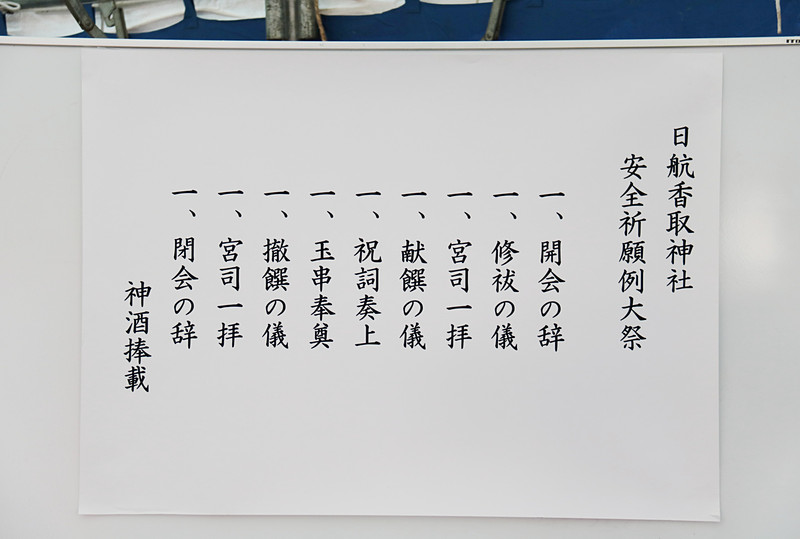 日航香取神社
安全祈願例大祭
一、開会の辞
一、修祓の儀
一、宮司一拝
一、献饌の儀
一、祝詞奏上
一、玉串奉奠
一、撤饌の儀
一、宮司一拝
一、閉会の辞
神酒捧載